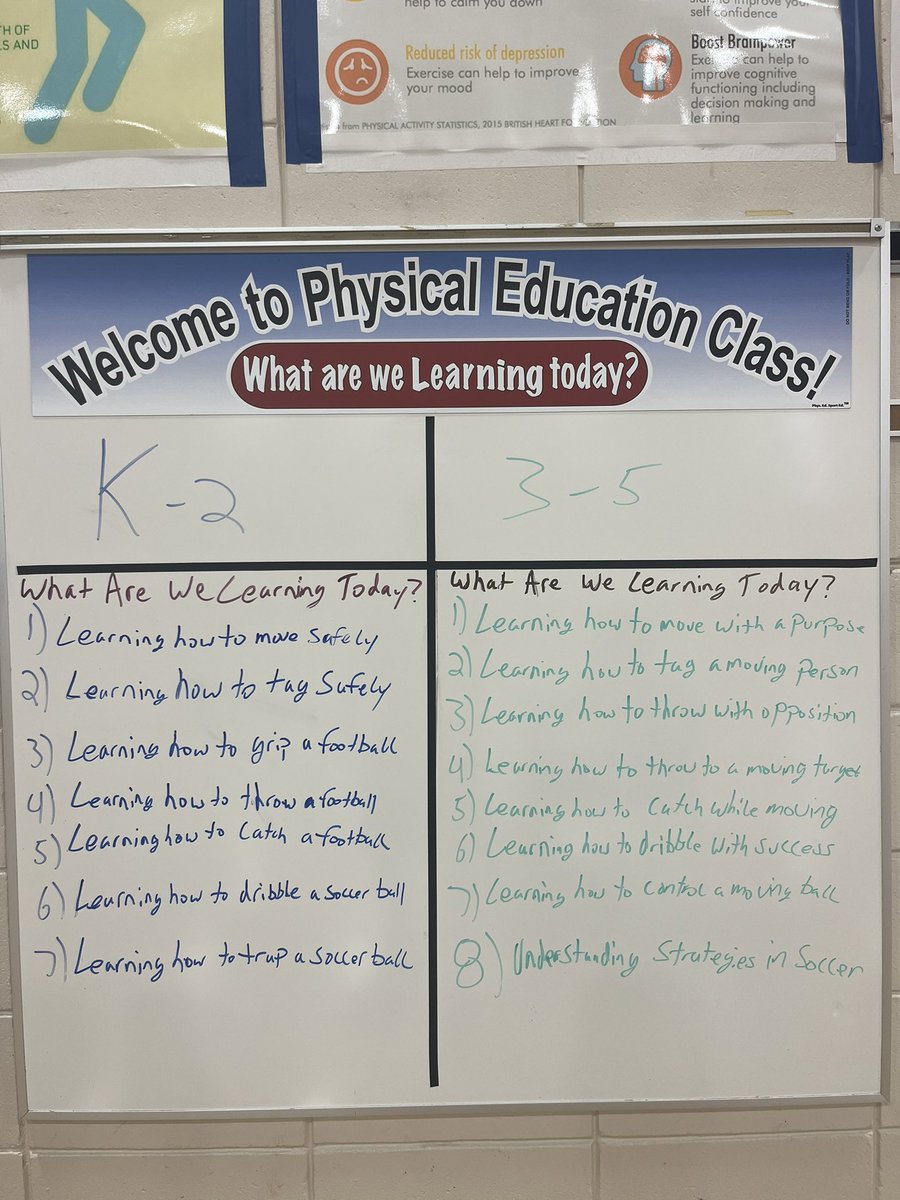 TH OF
LS AND
help to calm you down
self confidence
Reduced risk of depression
Exercise can help to improve
your mood
Boost Brainpower
Exercise can help to
improve cognitive
functioning including
decision making and
learning
from PHYSICAL ACTIVITY STATISTICS, 2015 BRITISH HEART FOUNDATION
Welcome to Physical Education Class!
What are we Learning today?
Phys. Ed. Sport Ed.™
K-2
What Are We Learning Today?
1) Learning how to move safely
2) Learning how to tag Safely
3) Learning how to grip a football
4) Learning how to throw a football
5) Learning how to catch a football
6) Learning how to dribble a soccer ball
7) Learning how to trap a soccer ball
3-5
What Are We Learning Today?
1) Learning how to move with a purpose
2) Learning how to tag a moving person
3) Learning how to throw with opposition
4) Learning how to throw to a moving target
5) Learning how to catch while moving
6) Learning how to dribble with success
7) Learning how to control a moving ball
8) Understanding Strategies in Soccer